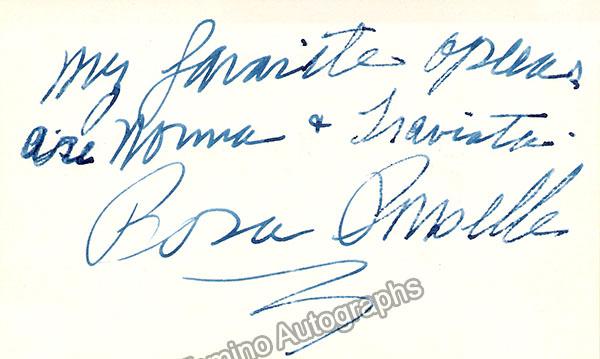 My favorite operas
are Norma & Traviata.
Rosa Ponselle
Tamino Autographs